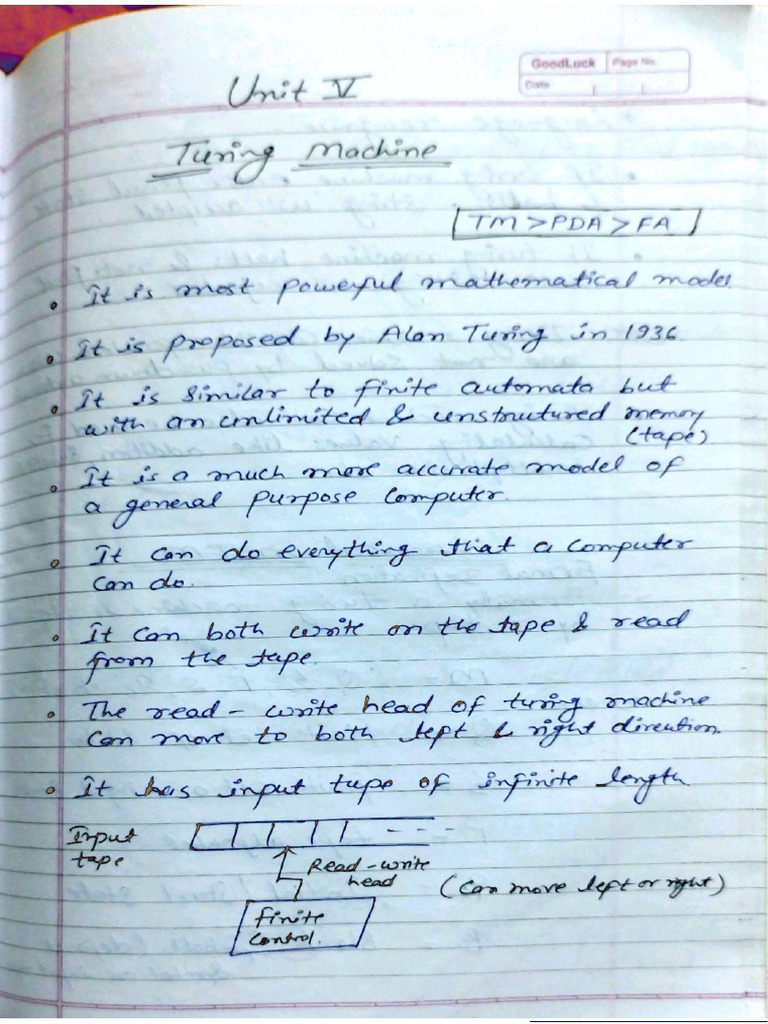 GoodLuck Page No.
Date
Unit V
Turing Machine
TM > PDA > FA
It is most powerful mathematical model.
It is proposed by Alan Turing in 1936.
It is similar to finite automata but
with an unlimited & unstructured memory
(tape)
It is a much more accurate model of
a general purpose computer.
It can do everything that a computer
can do.
It can both write on the tape & read
from the tape.
The read - write head of turing machine
can move to both left & right direction.
It has input tape of infinite length
Input
tape
Read - write
head
(Can move left or right)
finite
control.